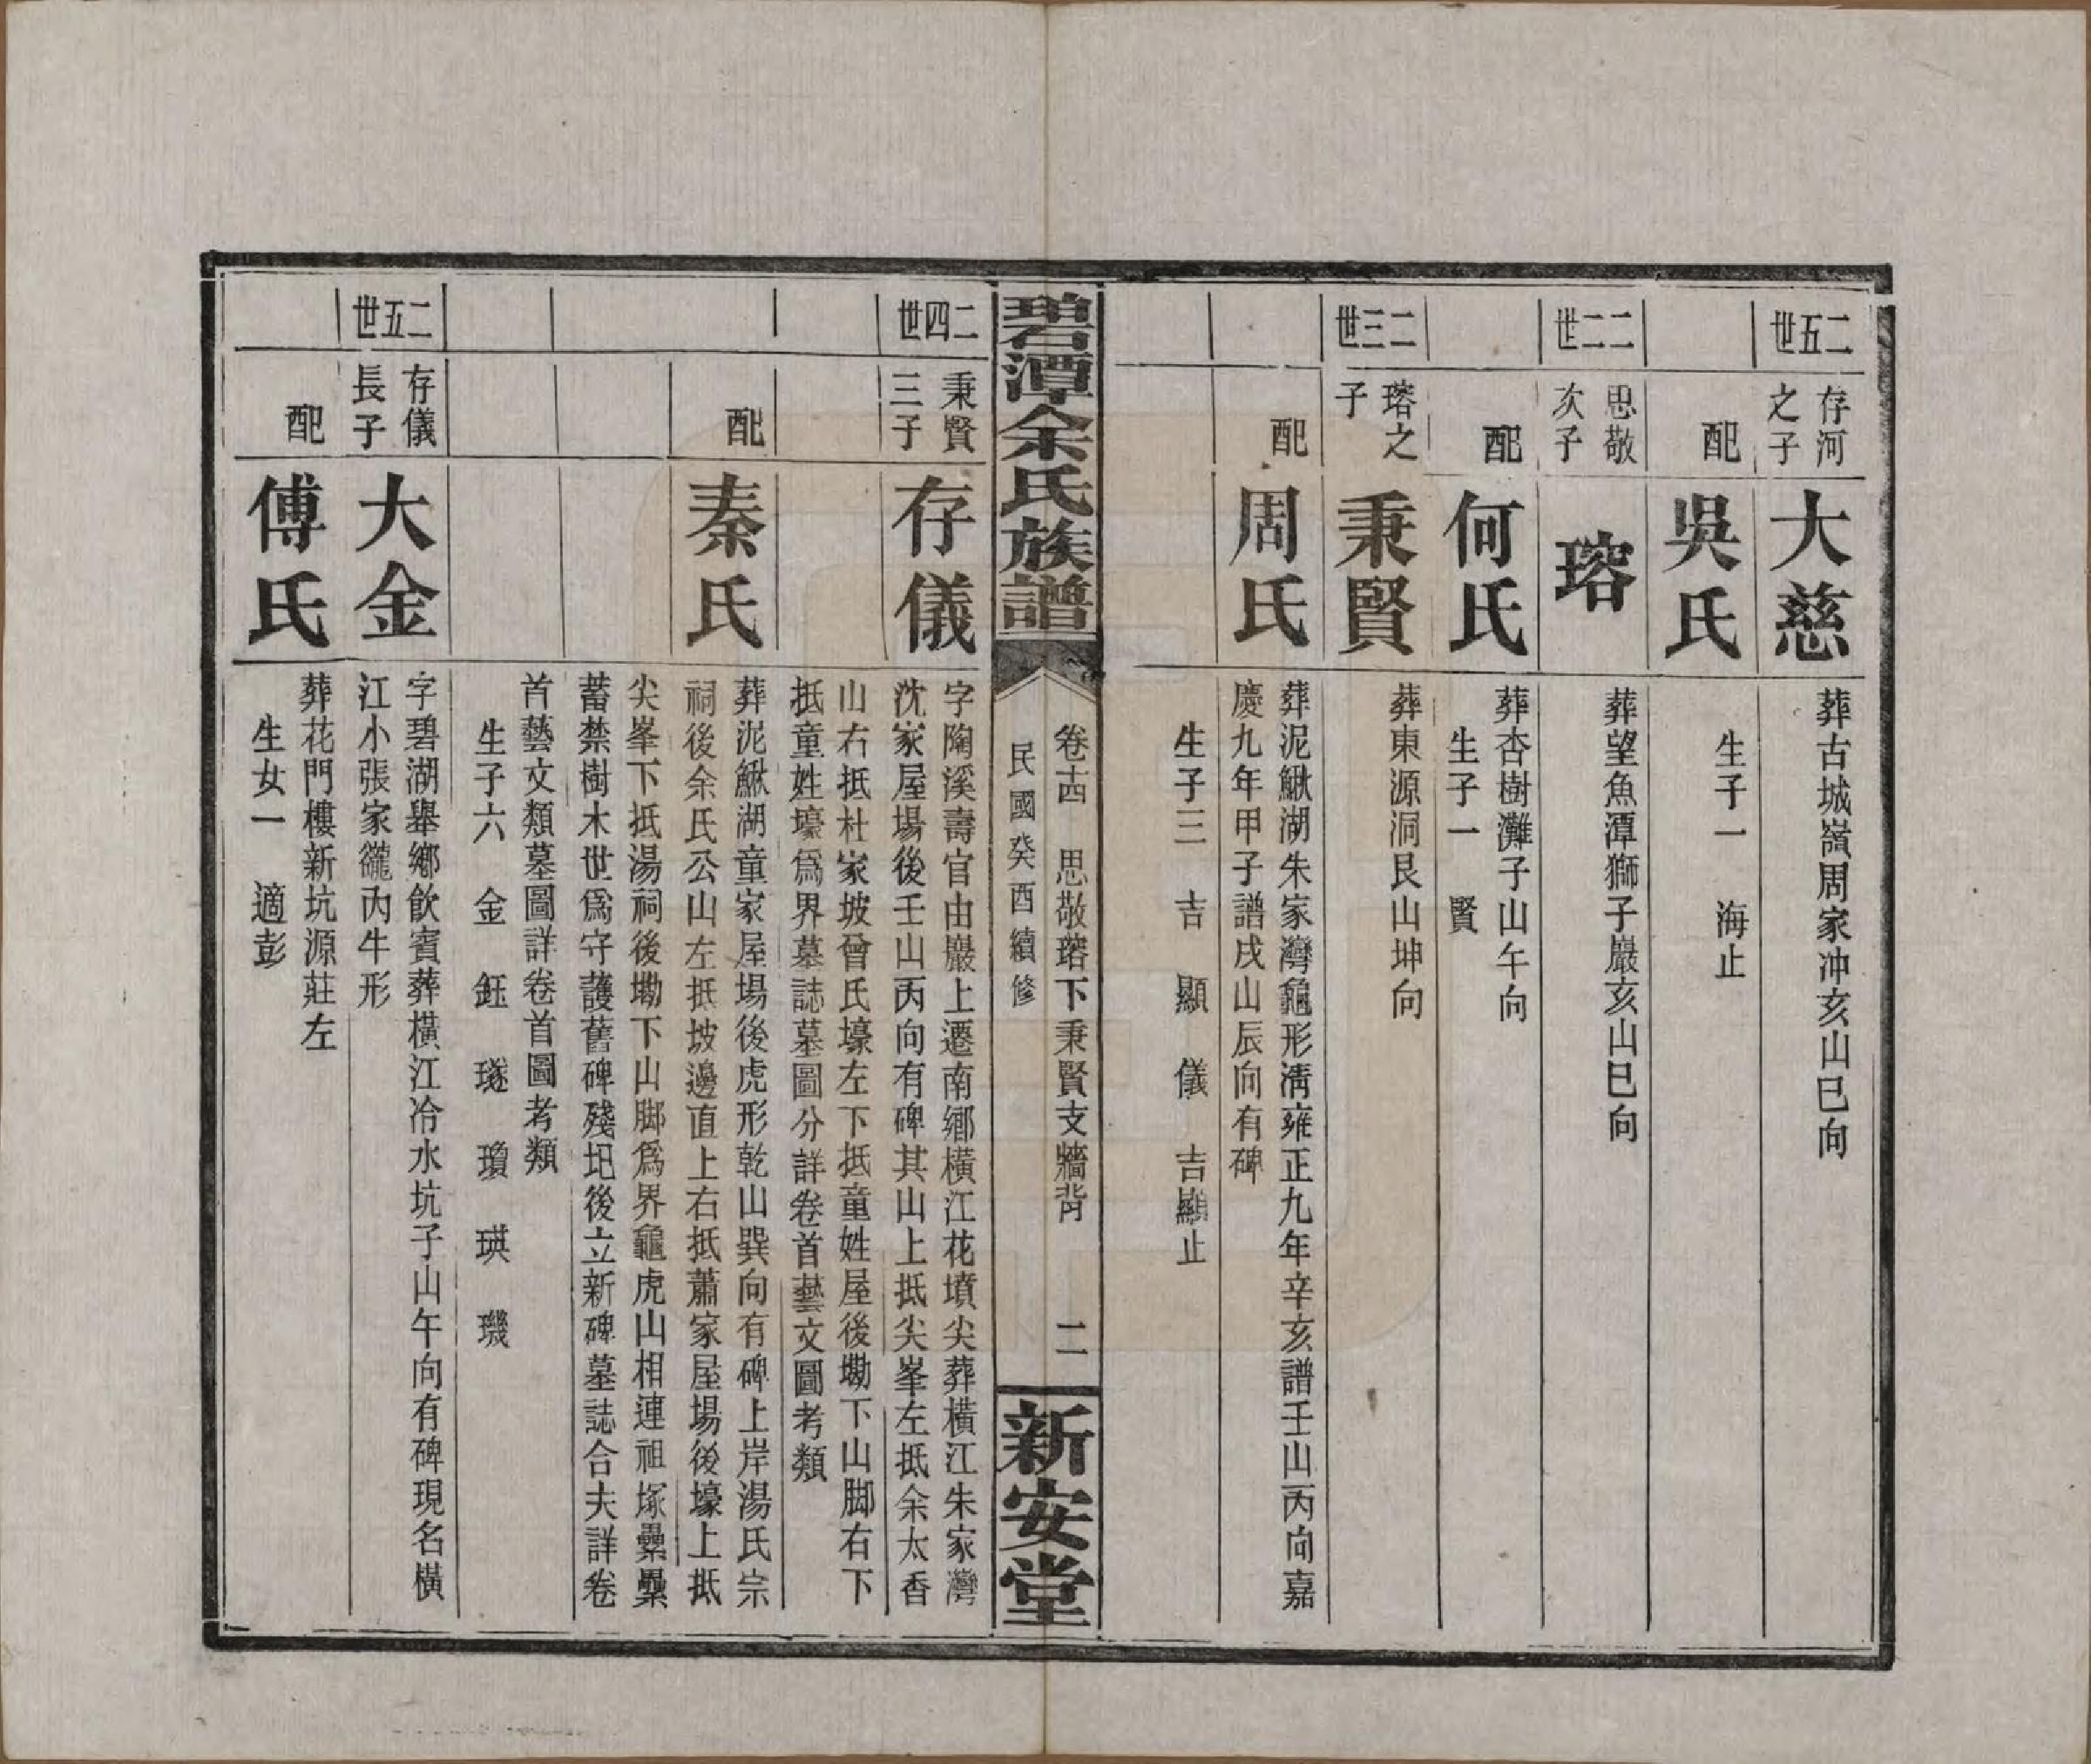 二五世
存河
之子
大慈
葬古城嶺周家冲亥山巳向
配
吳氏
生子一　海止
二二世
思敬
次子
瑢
葬望魚潭獅子巖亥山巳向
配
何氏
葬杏樹灘子山午向
生子一　賢
二三世
瑢之
子
秉賢
葬東源洞艮山坤向
配
周氏
葬泥鰍湖朱家灣龜形淸雍正九年辛亥譜壬山丙向嘉
慶九年甲子譜戌山辰向有碑
生子三　吉　顯　儀　吉顯止
碧潭余氏族譜
卷十四　思敬瑢下秉賢支牆背　二
民國癸酉續修
新安堂
二四世
秉賢
三子
存儀
字陶溪壽官由巖上遷南鄉橫江花墳尖葬橫江朱家灣
沈家屋場後壬山丙向有碑其山上抵尖峯左抵余太香
山右抵杜家坡曾氏壕左下抵童姓屋後塝下山脚右下
抵童姓壕爲界墓誌墓圖分詳卷首藝文圖考類
配
秦氏
葬泥鰍湖童家屋場後虎形乾山巽向有碑上岸湯氏宗
祠後余氏公山左抵坡邊直上右抵蕭家屋場後壕上抵
尖峯下抵湯祠後塝下山脚爲界龜虎山相連祖塚纍纍
蓄禁樹木世爲守護舊碑殘圯後立新碑墓誌合夫詳卷
首藝文類墓圖詳卷首圖考類
生子六　金　鈺　璲　瓊　瑛　璣
二五世
存儀
長子
大金
字碧湖舉鄉飲賓葬橫江冷水坑子山午向有碑現名橫
江小張家𧯆內牛形
配
傅氏
葬花門樓新坑源莊左
生女一　適彭